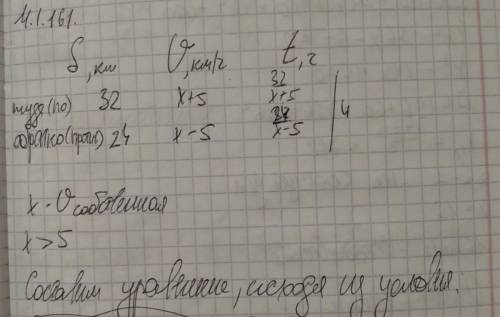 4.1.161.
S, км V, км/г t, г
туда (по) 32 x+5 32/x+5
обратно (прот) 24 x-5 24/x-5 4
x - V собственная
x>5
Составим уравнение, исходя из условия: